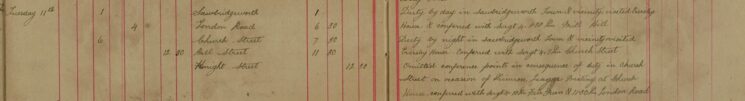 Tuesday 11th 1 Sawbridgeworth 1 Duty by day in Sawbridgeworth Town & vicinity visited
4 London Road 6 30 House & conferred with Sergt 4. Mill Hill
6 Church Street 7 30 Duty by night in Sawbridgeworth Town & vicinity visited
12 30 Bell Street 11 30 House Conferred with Sergt 4. Church Street
Knight Street 12 30 Omitted conference points in consequence of duty in Church
Street on occasion of Primrose League Meeting at Church
House conferred with Sergt London Road